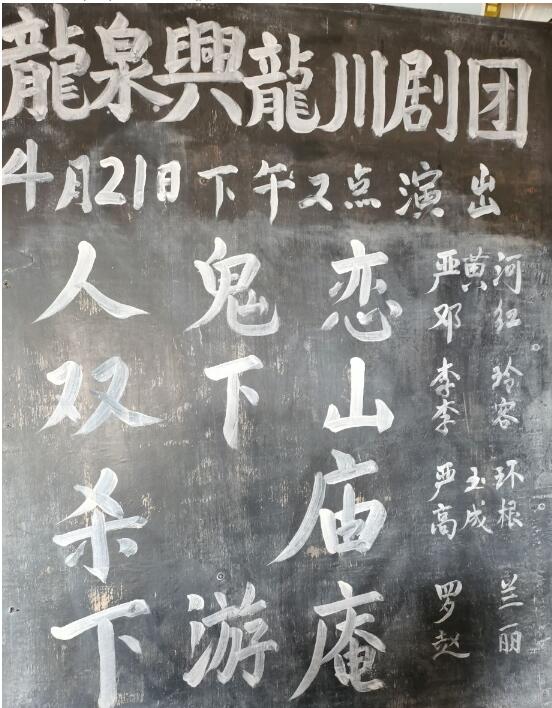 龍泉興龍川剧团
4月21日下午2点演出
人鬼恋 严黄河 邓红
双下山 李玲 李容
杀庙 严玉环 高成根
下游庵 罗兰 赵一丽